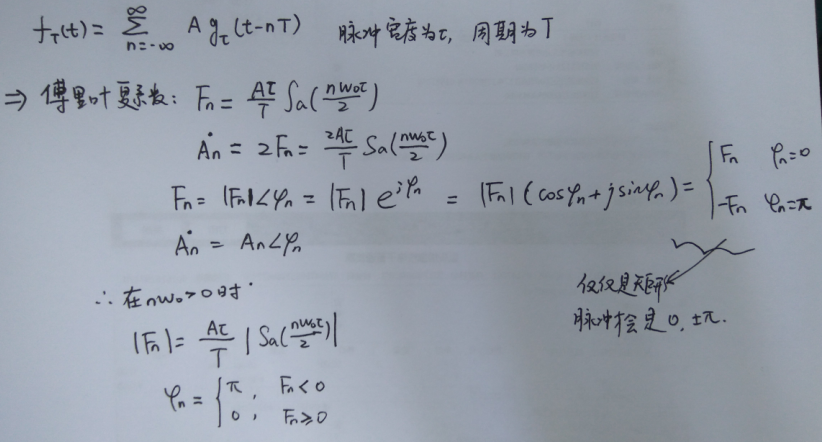 f_T(t) = ∑_{n=-∞}^{∞} A g_τ(t-nT)  脉冲宽度为τ, 周期为T
⇒ 傅里叶复系数: F_n = Aτ/T Sa(nw₀τ/2)
Ȧn = 2F_n = 2Aτ/T Sa(nw₀τ/2)
F_n = |F_n|∠φ_n = |F_n| e^{jφ_n} = |F_n| (cosφ_n + j sinφ_n) = { F_n  φ_n=0
-F_n  φ_n=π
Ȧn = An∠φ_n
仅仅是矩形
脉冲才会是0, ±π.
∴ 在nw₀>0时
|F_n| = Aτ/T |Sa(nw₀τ/2)|
φ_n = { π, F_n<0
0, F_n≥0